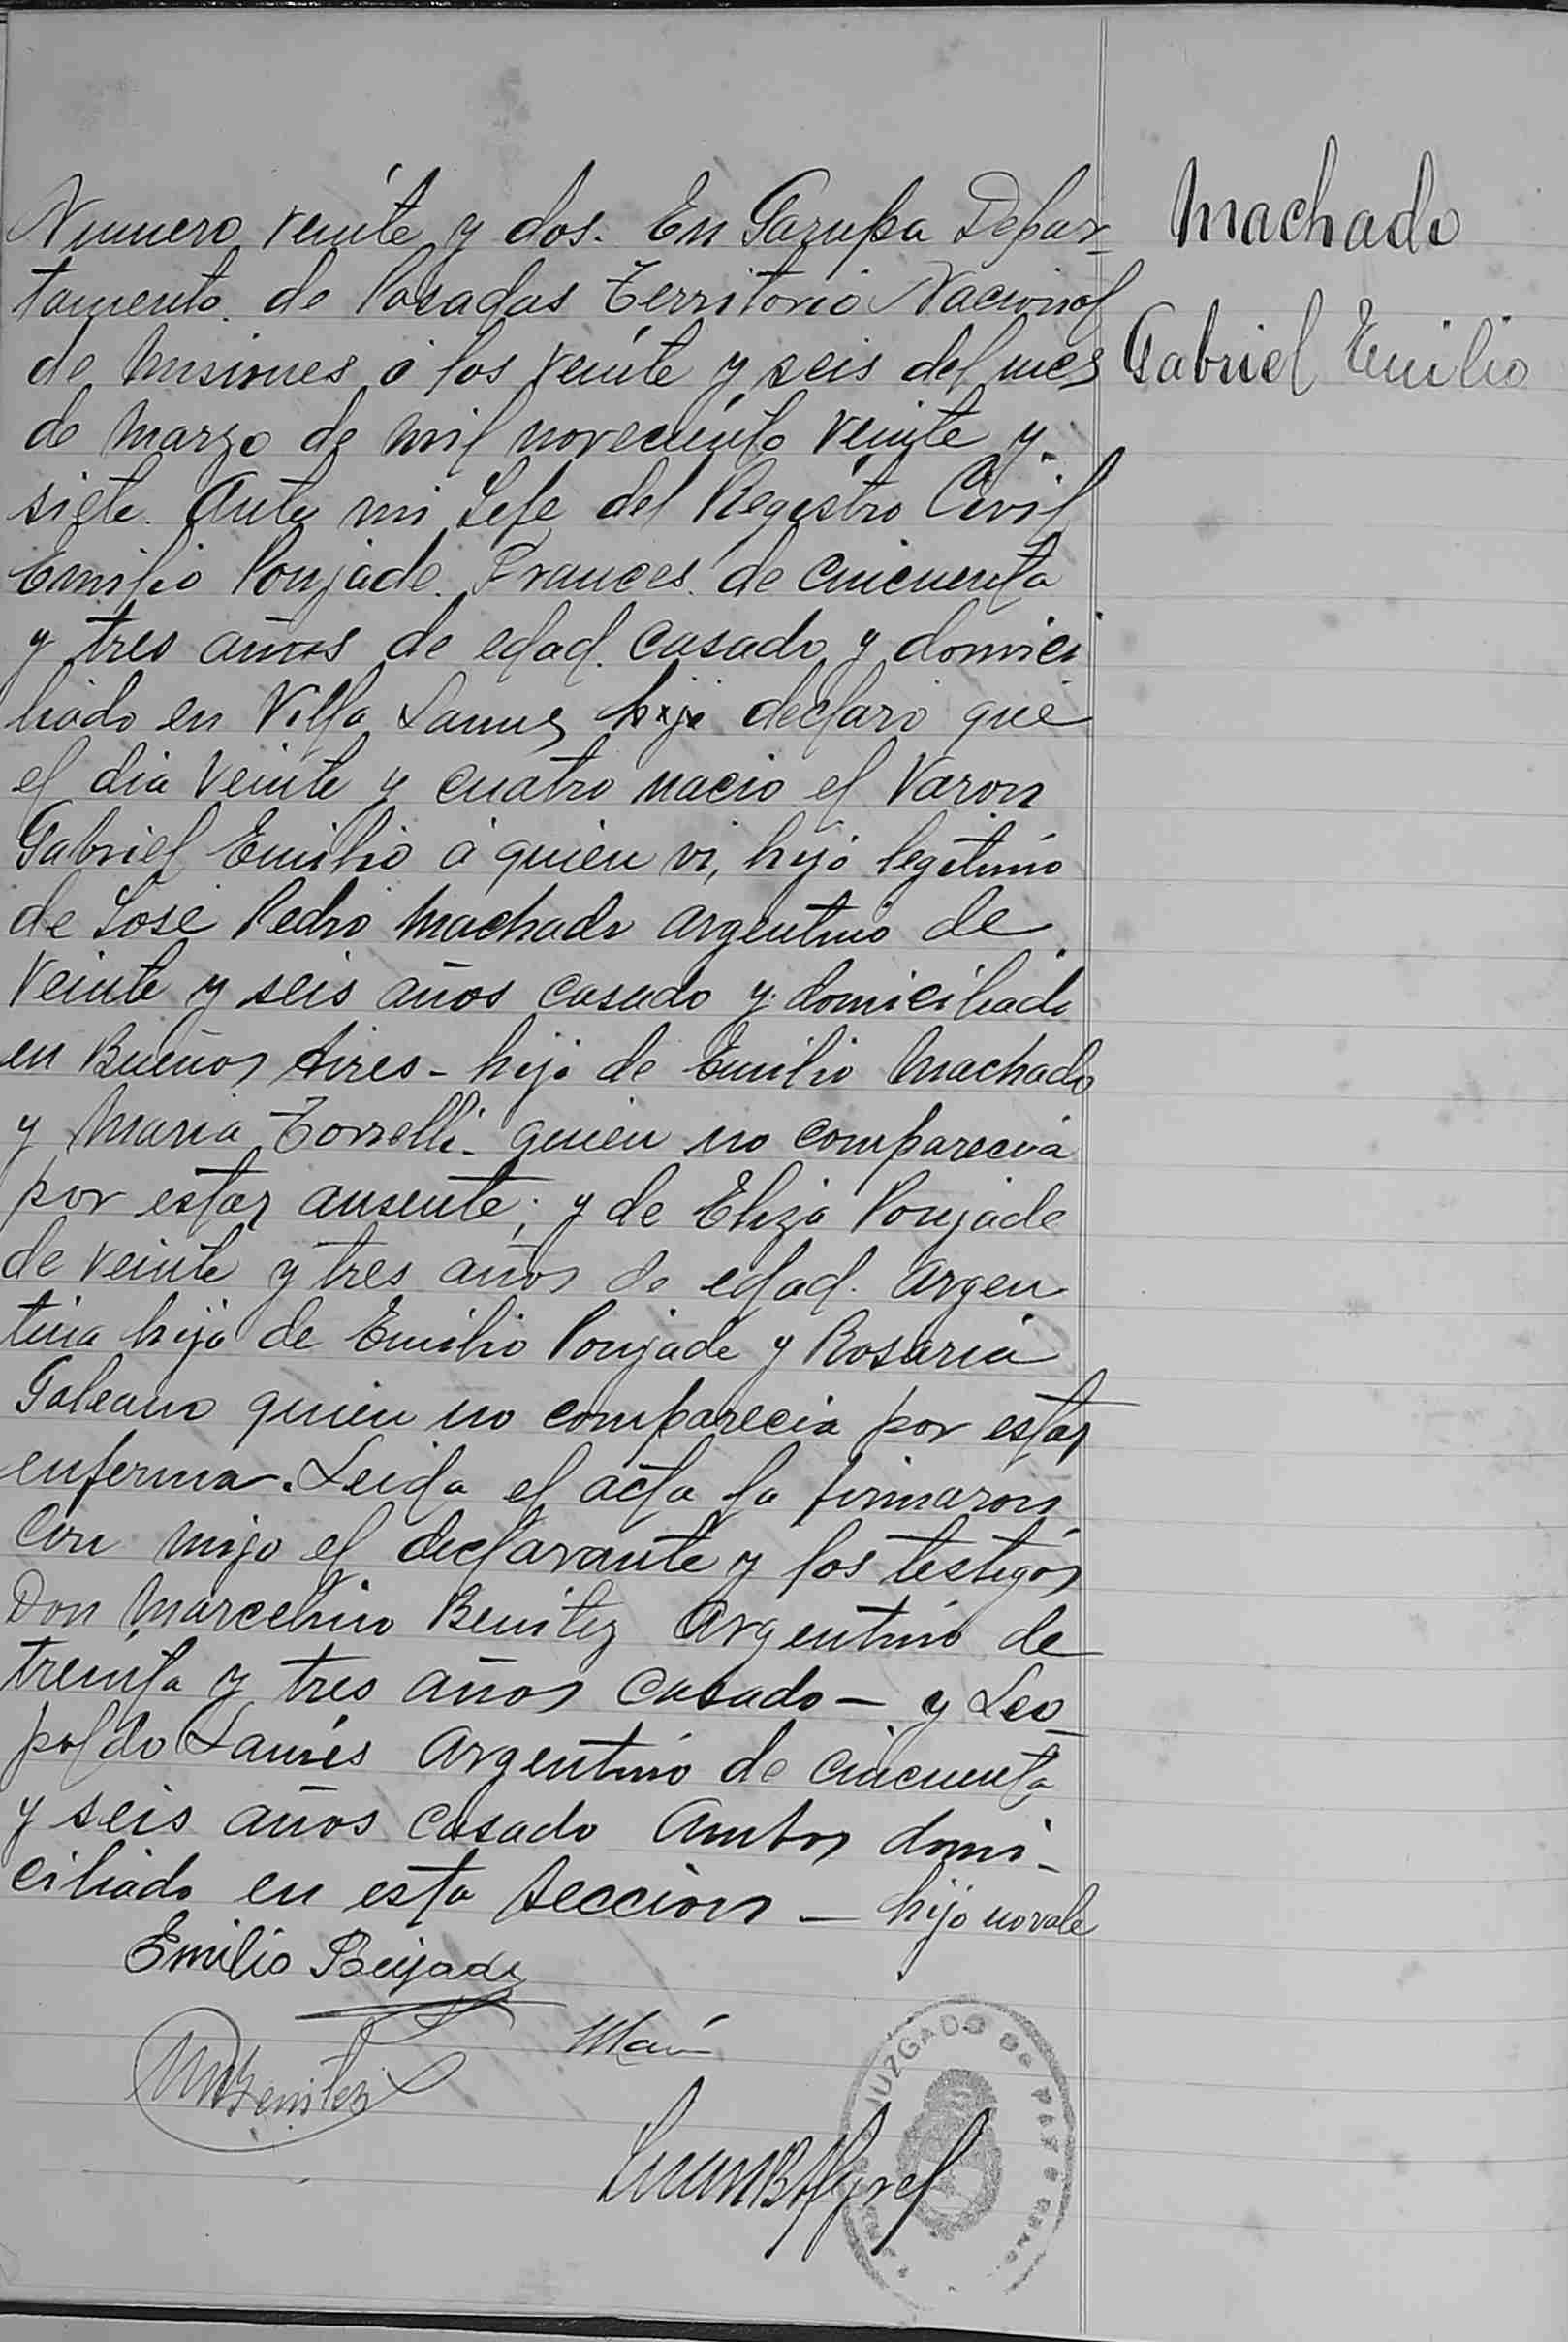 Numero veinte y dos. En Garupa Depar-
tamento. de Posadas Territorio Nacional
de Misiones á los veinte y seis del mes
de Marzo de mil novecciento veinte y
siete. Ante mi Jefe del Registro Civil
Emilio Poujade. Frances. de cincuenta
y tres años de edad. casado y domici
liado en Villa Lanus hijo declaro que
el dia veinte y cuatro nacio el Varon
Gabriel Emilio á quien vi, hijo legitimo
de José Pedro Machado argentino de
veinte y seis años casado y domiciliado
en Buenos Aires - hijo de Emilio Machado
y Maria Torrelli - quien no comparecia
por estar ausente; y de Eliza Poujade
de veinte y tres años de edad. argen
tina hija de Emilio Poujade y Rosaria
Galeano quien no comparecia por estar
enferma. Leida el acta la firmaron
con migo el declarante y los testigos
Don Marcelino Benitez Argentino de
treinta y tres años casado - y Leo_
poldo Lanús argentino de cincuenta
y seis años casado Ambos domi-
ciliado en esta seccion - hijo no vale
Emilio Poujade
MBenitez
JUZGADO DE PAZ
Machado
Gabriel Emilio